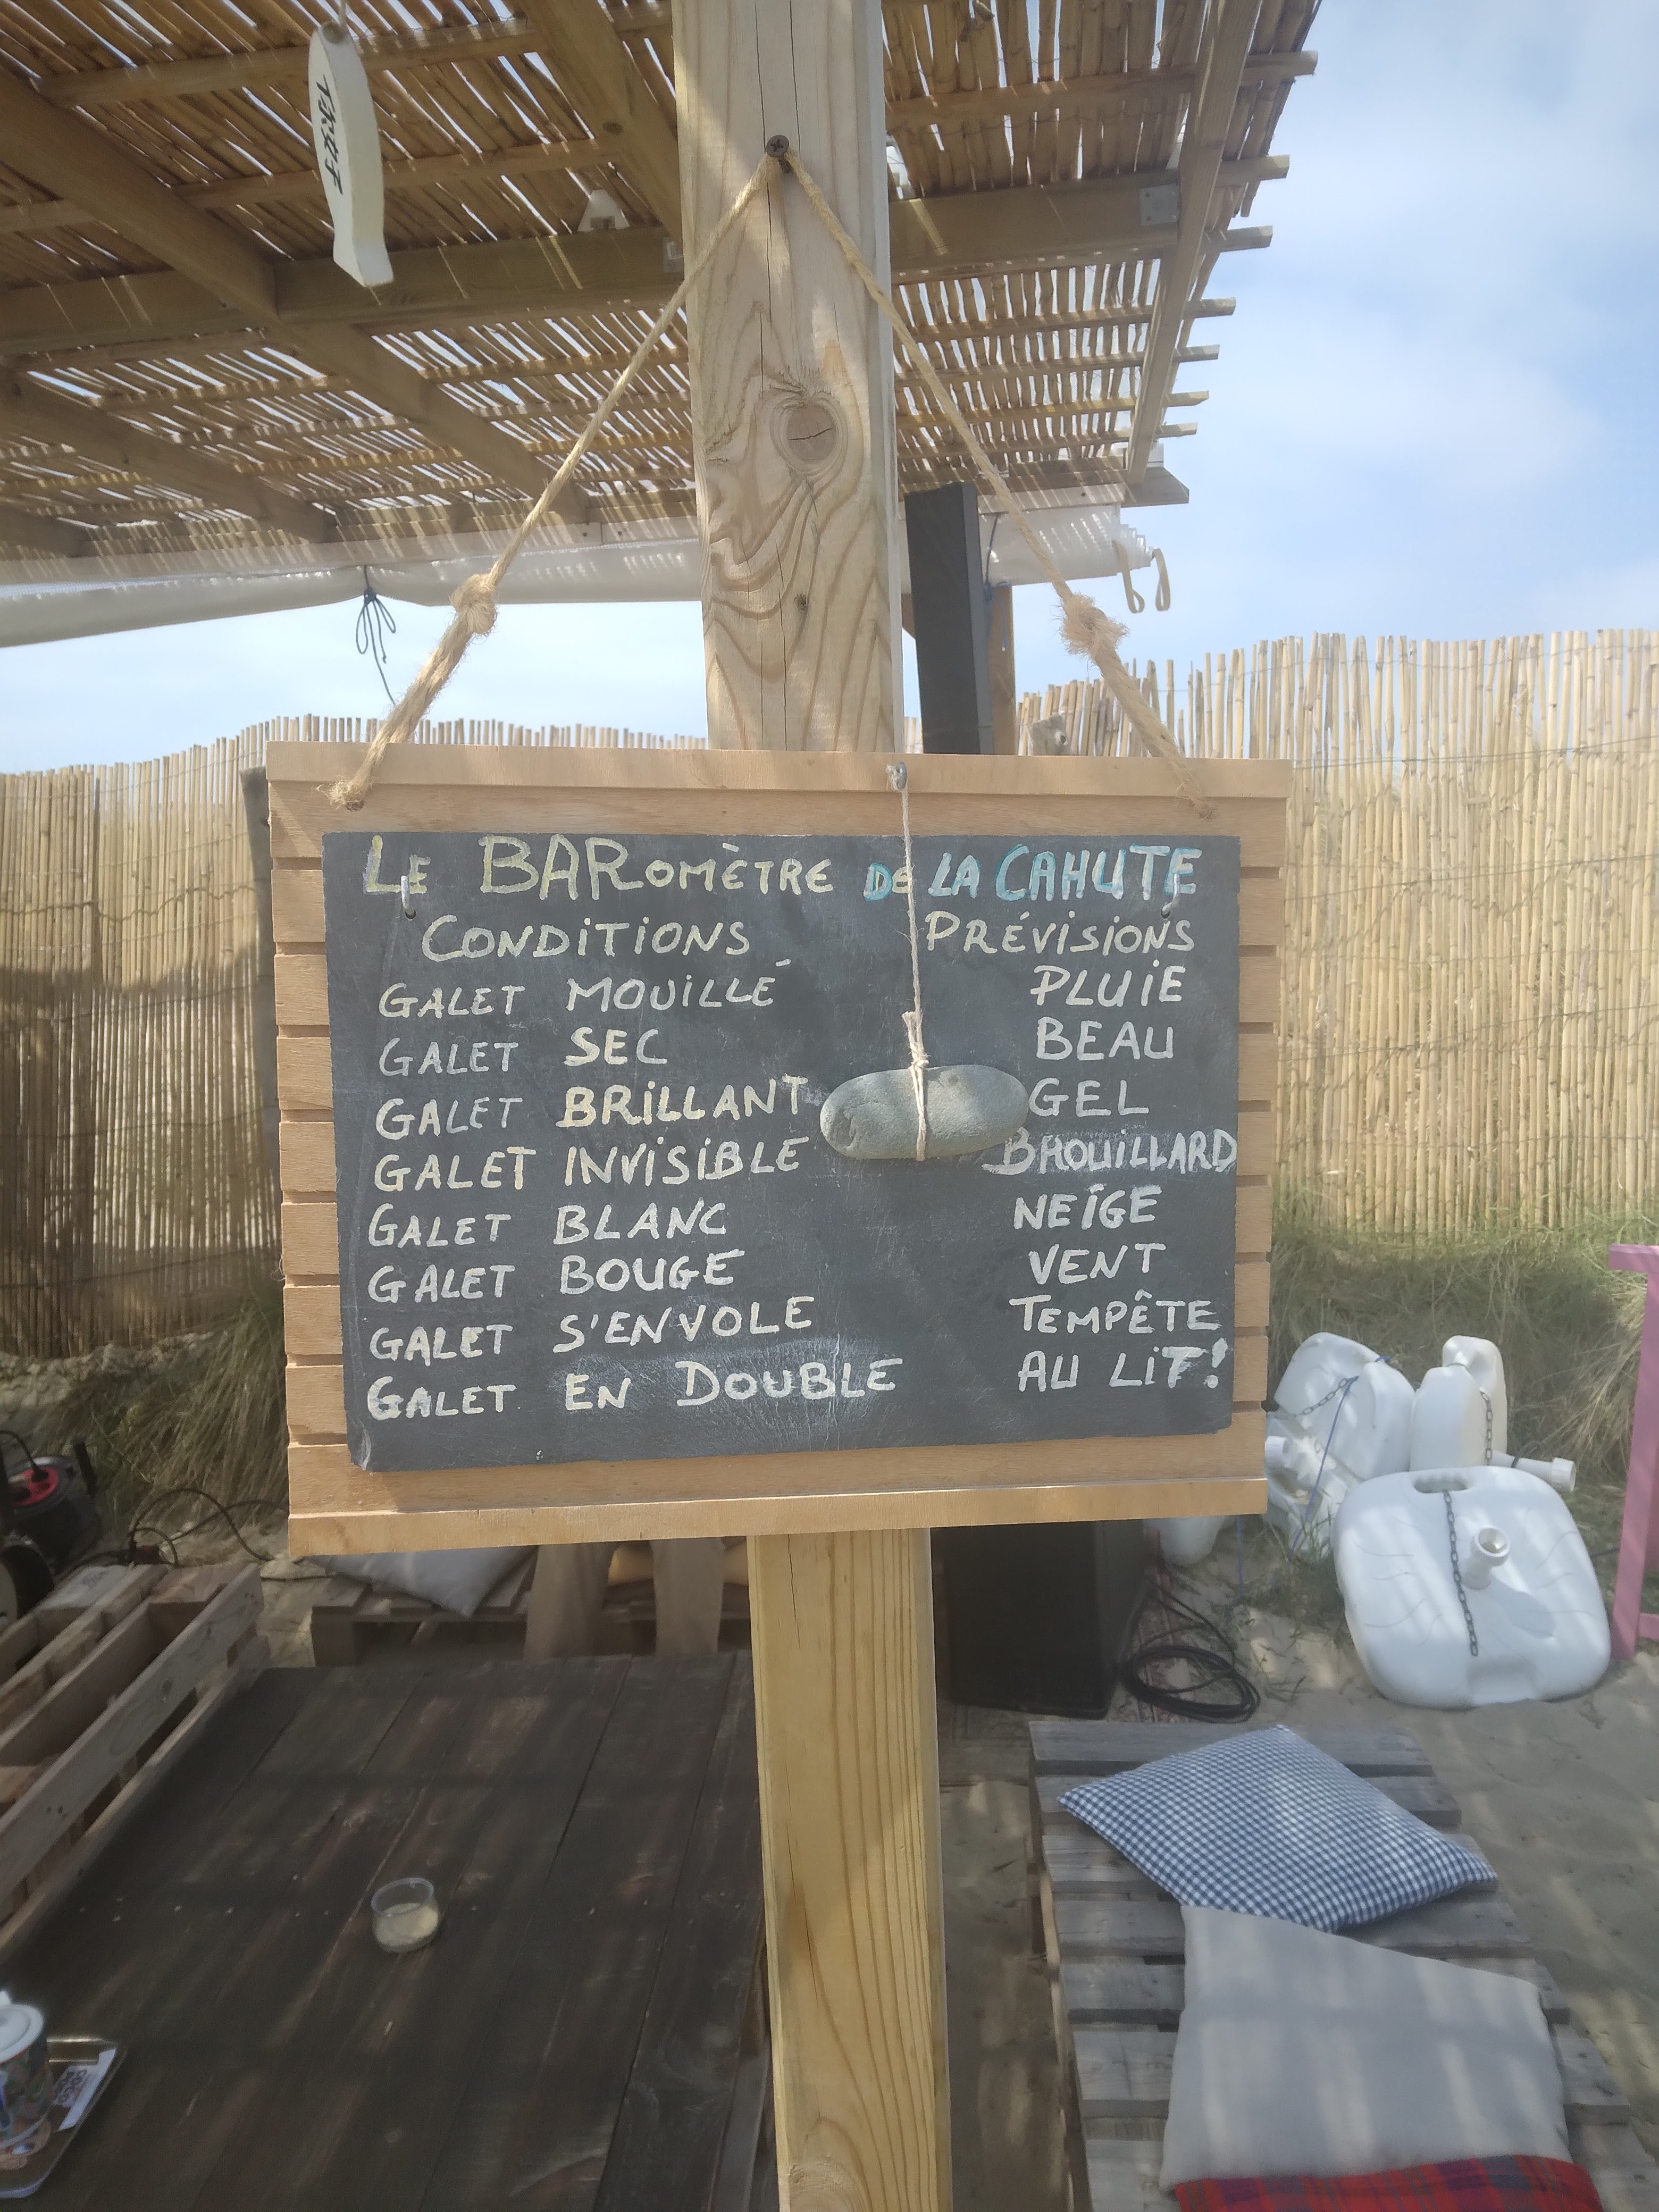 LE BAROMÈTRE DE LA CAHUTE
CONDITIONS PRÉVISIONS
GALET MOUILLÉ PLUIE
GALET SEC BEAU
GALET BRILLANT GEL
GALET INVISIBLE BROUILLARD
GALET BLANC NEIGE
GALET BOUGE VENT
GALET S'ENVOLE TEMPÊTE
GALET EN DOUBLE AU LIT!